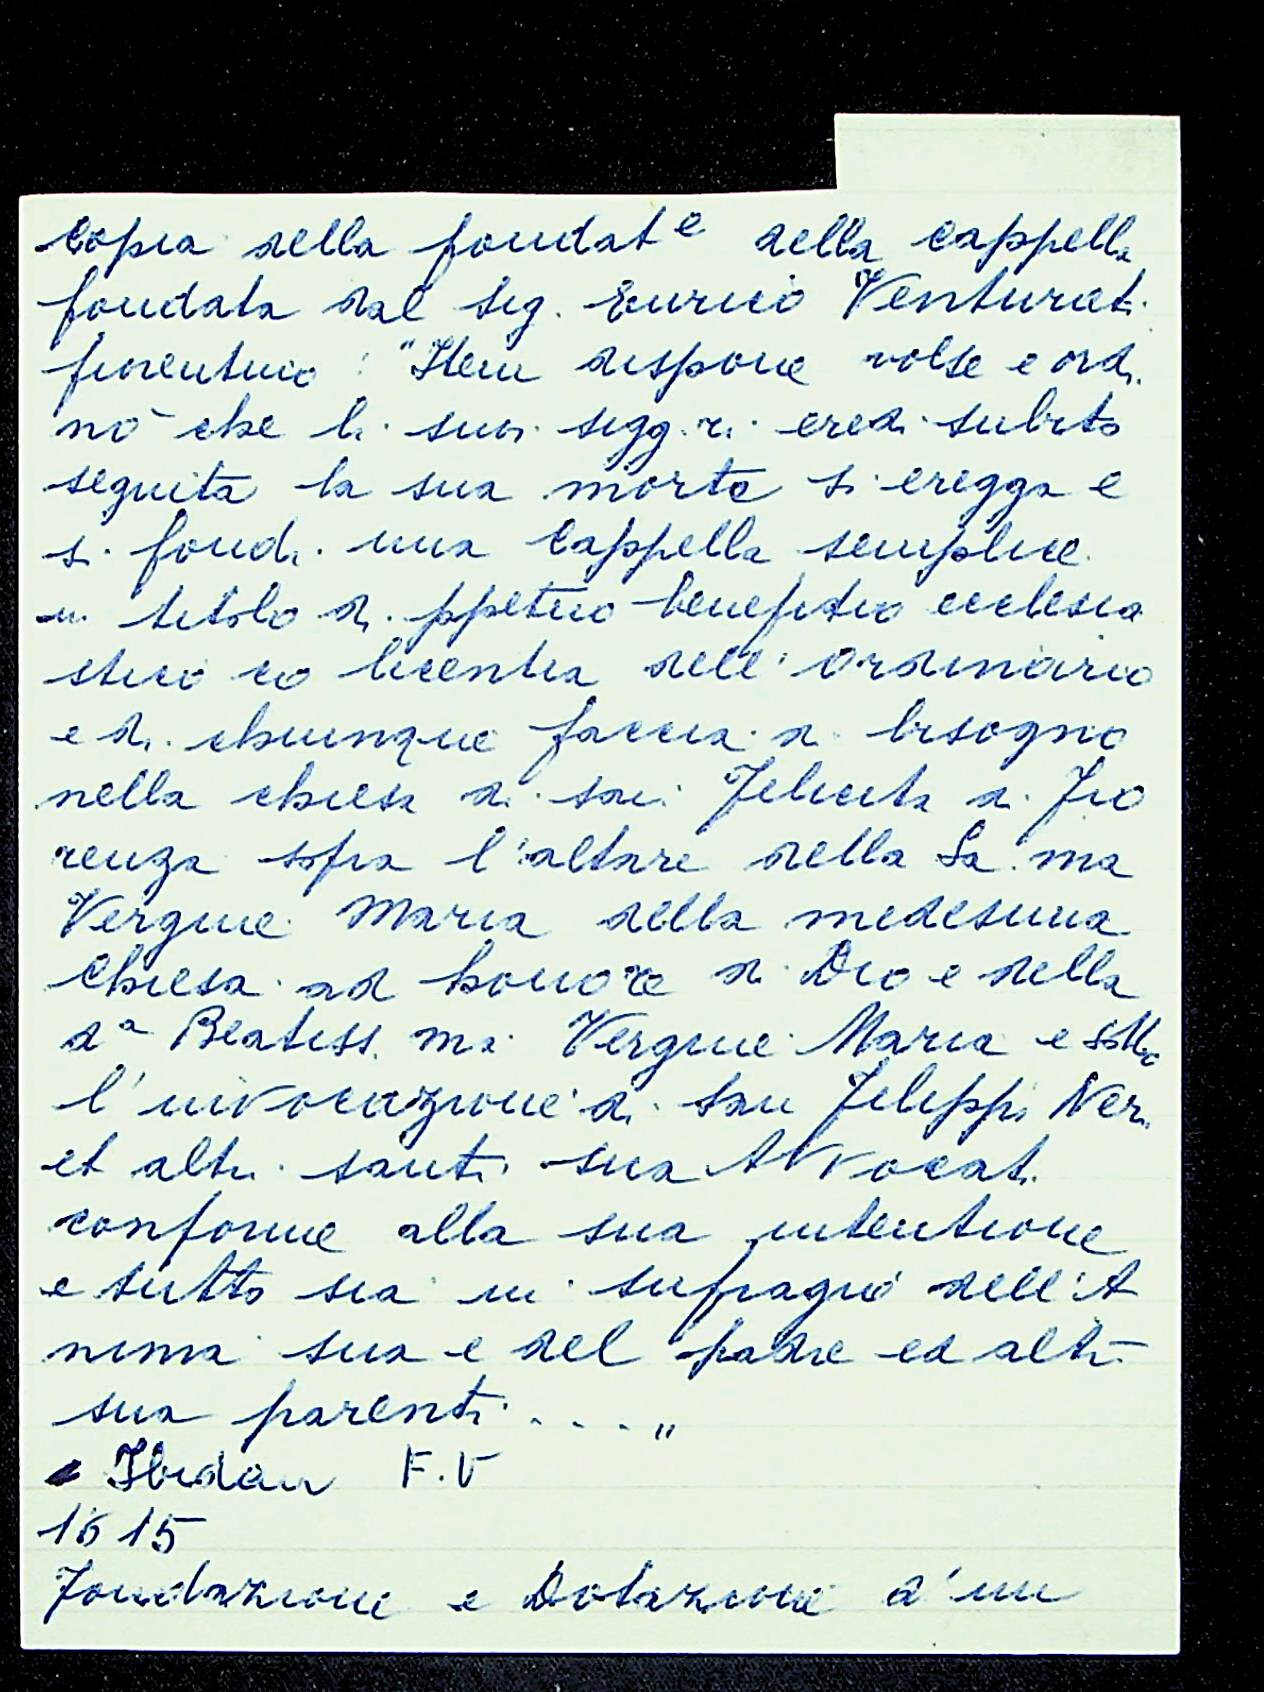 Copia della fondat e della cappella
fondata dal sig. Enrico Venturati
fiorentino : "Item dispone volse e ordi
nò che li suoi sigg.ri eredi subito
seguita la sua morte si eregga e
si fondi una Cappella semplice
in titolo di ppetuo benefitio ecclesia
stico co licentia dell'Ordinario
e di chiunque faccia di bisogno
nella chiesa di san Felicita di Fio
renza sopra l'altare della Sa.ma
Vergine Maria della medesima
Chiesa ad honore di Dio e della
da Beatiss.ma Vergine Maria e sotto
l'invocazione di San Filippi Neri
et altri santi sua Avvocati
conforme alla sua intentione
e tutto sia in sufragio dell'A
nima sua e del padre ed altri
sua parenti . . . . "
Ibidem F.V
1615
Fondazione e Dotazione d'un